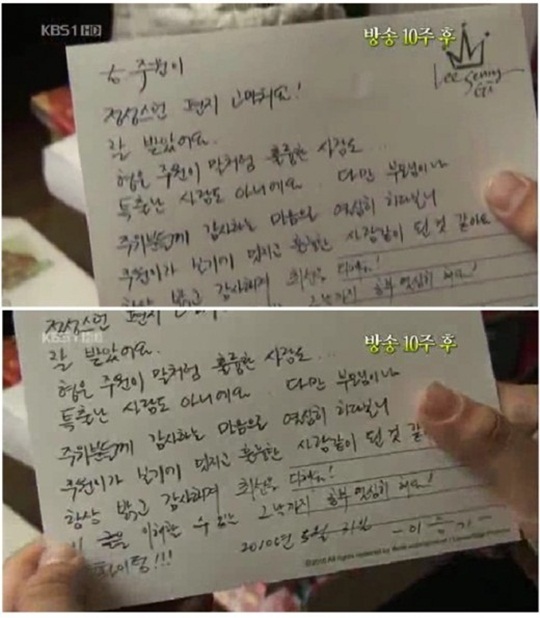 KBS1 HD
방송 10주 후
Lee Seung Gi
to 주원이
정성스런 편지 고마워요!
잘 받았어요.
형은 주원이 말처럼 훌륭한 사람도...
특출난 사람도 아니에요. 다만 부모님이나
주위분들께 감사하는 마음으로 열심히 하다보니
주원이가 보기에 멋지고 훌륭한 사람같이 된 것 같아요
항상 밝고 감사하게 최선을
방송 10주 후
정성스런 편지
잘 받았어요.
형은 주원이 말처럼 훌륭한 사람도...
특출난 사람도 아니에요. 다만 부모님이나
주위분들께 감사하는 마음으로 열심히 하다보니
주원이가 보기에 멋지고 훌륭한 사람같이 된 것 같
항상 밝고 감사하게 최선을
그날까지 공부 열심히 해요!
2010년 5월 31일 -이승기-
화이팅!!!